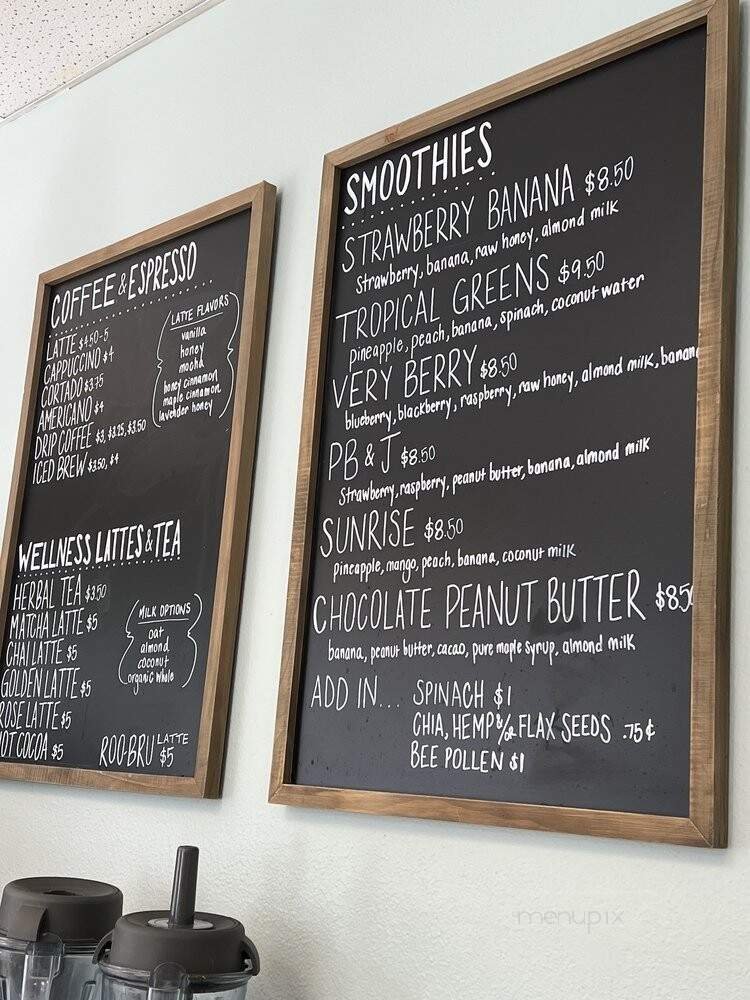 COFFEE & ESPRESSO
LATTE $4.50-5
CAPPUCCINO $4
CORTADO $3.75
AMERICANO $4
DRIP COFFEE $3, $3.25, $3.50
ICED BREW $3.50, $4
LATTE FLAVORS
vanilla
honey
mocha
honey cinnamon
maple cinnamon
lavender honey
WELLNESS LATTES & TEA
HERBAL TEA $3.50
MATCHA LATTE $5
CHAI LATTE $5
GOLDEN LATTE $5
ROSE LATTE $5
HOT COCOA $5
MILK OPTIONS
oat
almond
coconut
organic whole
ROO-BRU LATTE $5
SMOOTHIES
STRAWBERRY BANANA $8.50
Strawberry, banana, raw honey, almond milk
TROPICAL GREENS $9.50
pineapple, peach, banana, spinach, coconut water
VERY BERRY $8.50
blueberry, blackberry, raspberry, raw honey, almond milk, banana
PB & J $8.50
Strawberry, raspberry, peanut butter, banana, almond milk
SUNRISE $8.50
pineapple, mango, peach, banana, coconut milk
CHOCOLATE PEANUT BUTTER $8.50
banana, peanut butter, cacao, pure maple syrup, almond milk
ADD IN... SPINACH $1
CHIA, HEMP &/or FLAX SEEDS .75¢
BEE POLLEN $1
menupix